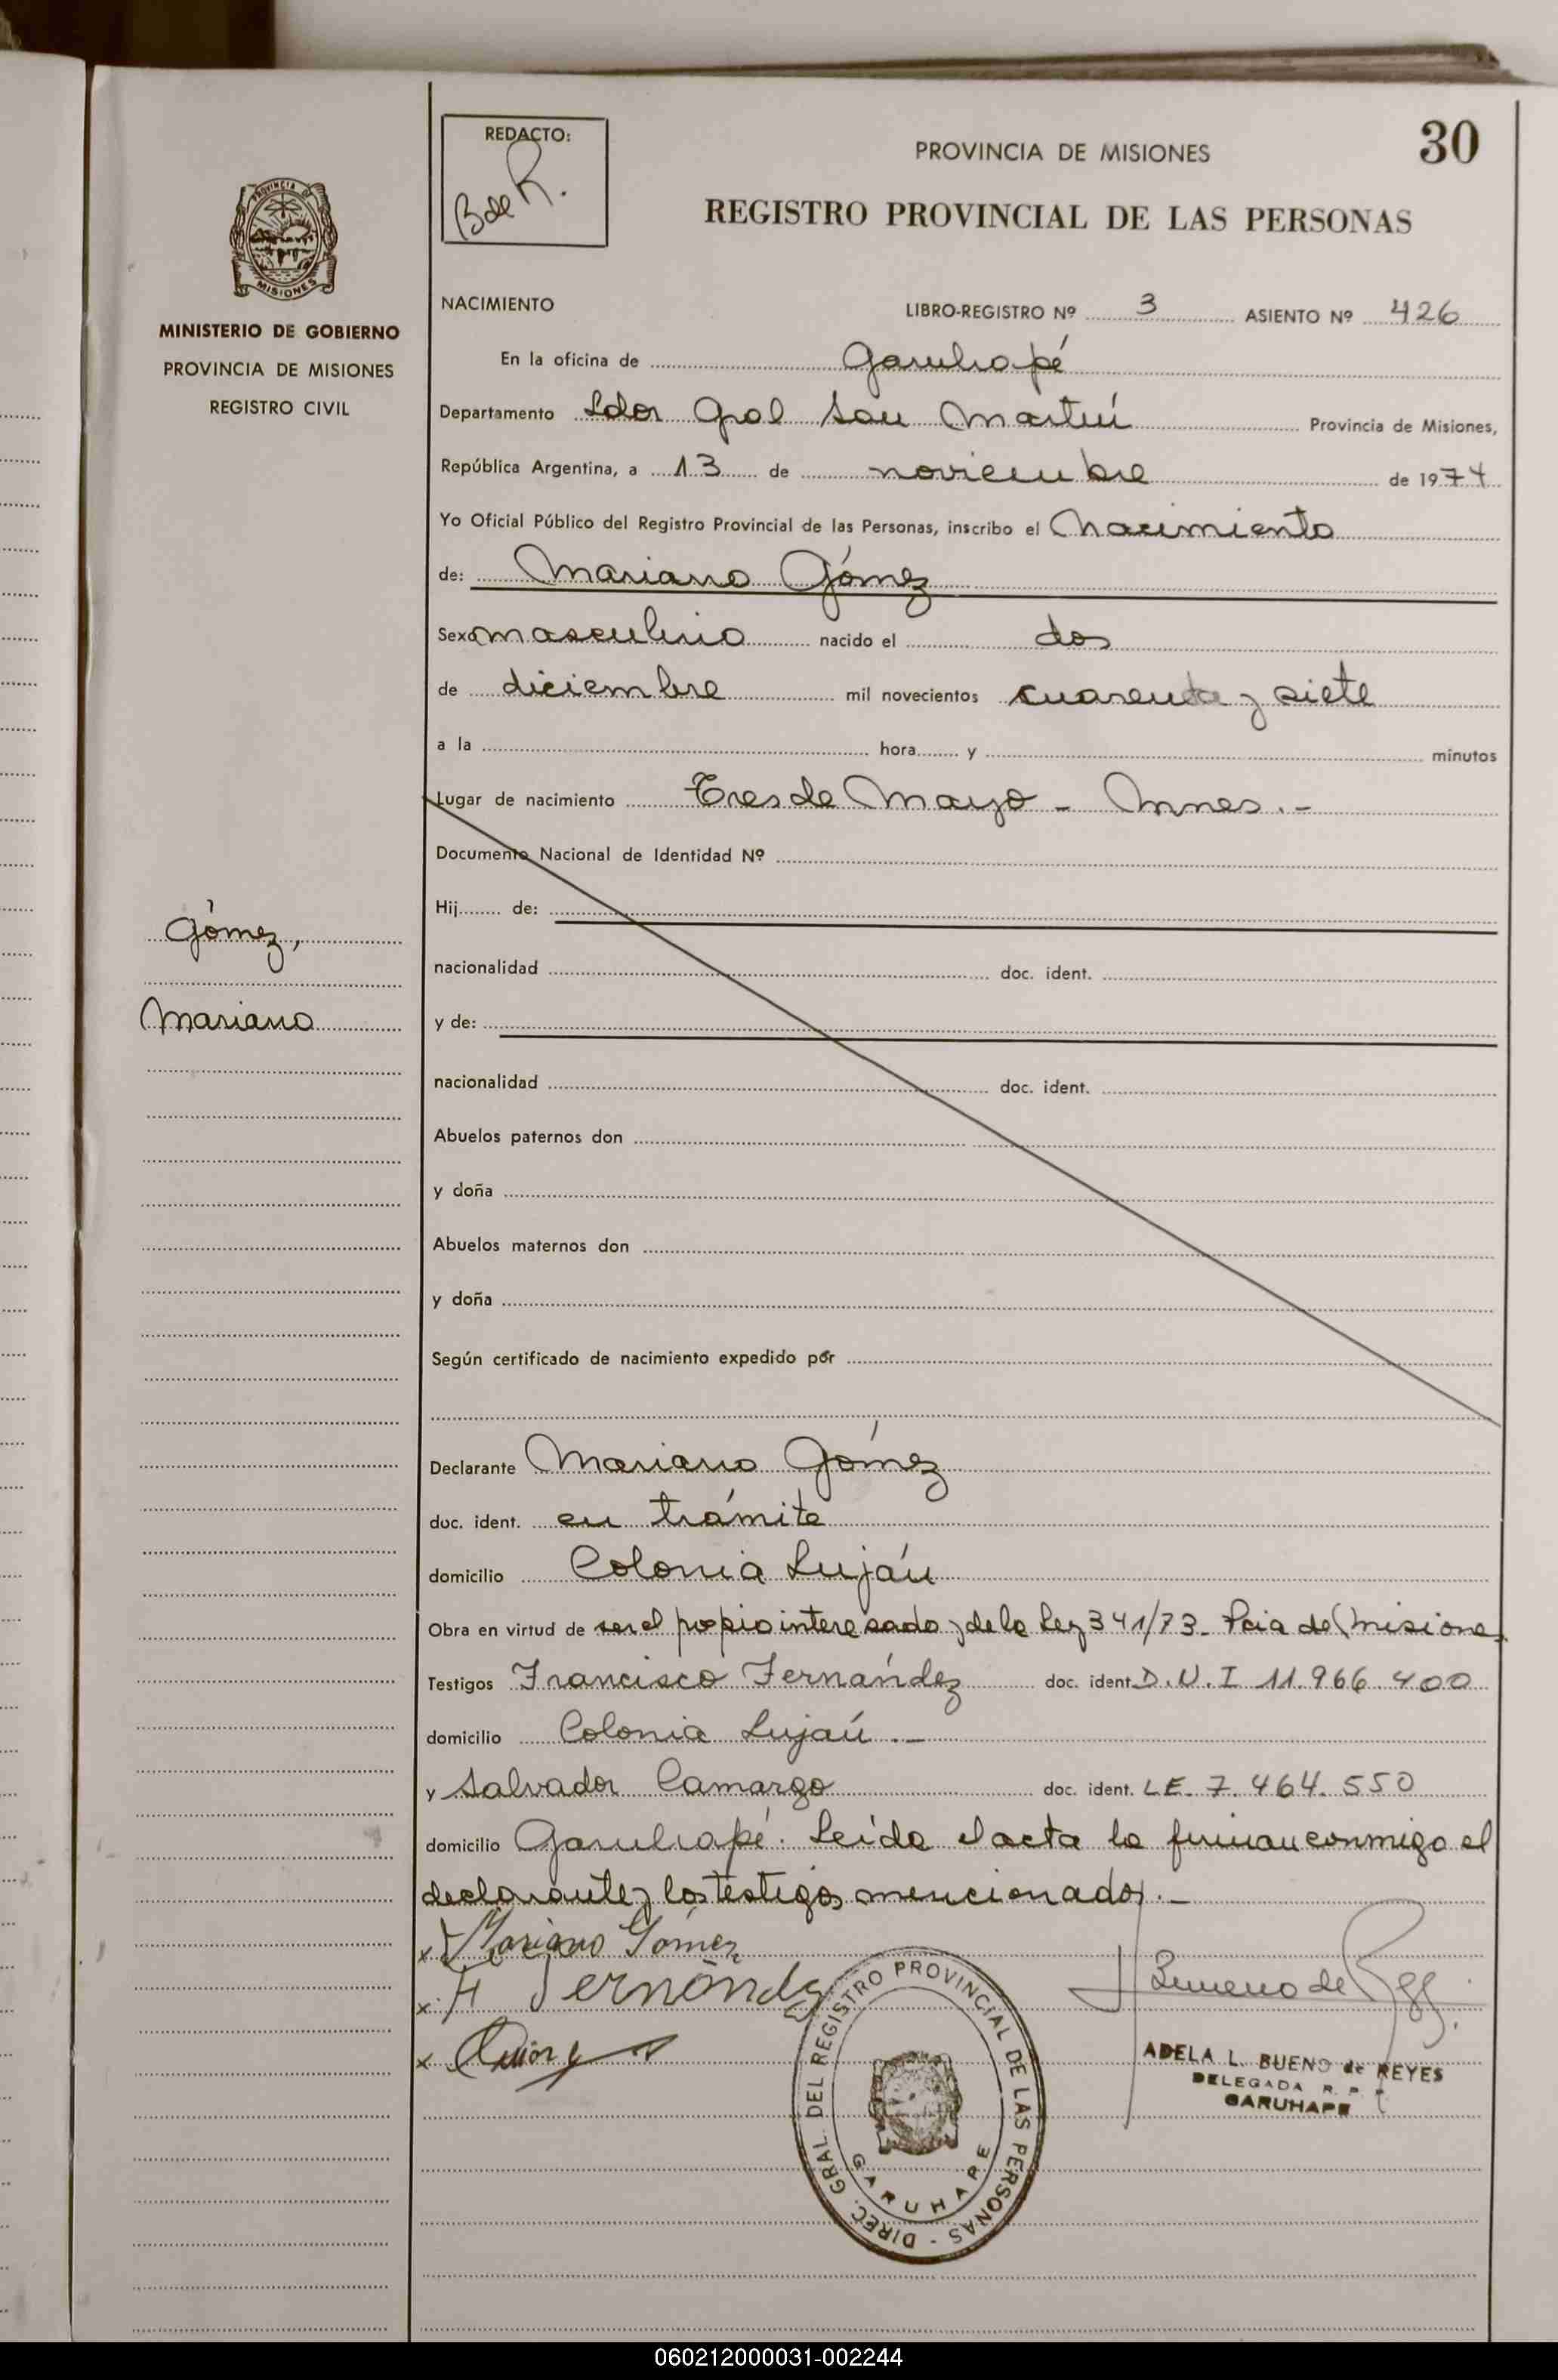 REDACTO:
B de R.
PROVINCIA DE MISIONES
30
REGISTRO PROVINCIAL DE LAS PERSONAS
PROVINCIA DE
MISIONES
MINISTERIO DE GOBIERNO
PROVINCIA DE MISIONES
REGISTRO CIVIL
NACIMIENTO LIBRO-REGISTRO Nº 3 ASIENTO Nº 426
En la oficina de Garuhapé
Departamento Ldor Gral San Martín Provincia de Misiones,
República Argentina, a 13 de noviembre de 1974
Yo Oficial Público del Registro Provincial de las Personas, inscribo el Nacimiento
de: Mariano Gómez
Sexo masculino nacido el dos
de diciembre mil novecientos cuarenta y siete
a la hora y minutos
Lugar de nacimiento Tres de Mayo - Mnes.-
Documento Nacional de Identidad Nº
Hij de:
Gómez,
Mariano
nacionalidad doc. ident.
y de:
nacionalidad doc. ident.
Abuelos paternos don
y doña
Abuelos maternos don
y doña
Según certificado de nacimiento expedido por
Declarante Mariano Gómez
doc. ident. en trámite
domicilio Colonia Luján
Obra en virtud de ser el propio interesado y de la Ley 341/73- Pcia de Misiones
Testigos Francisco Fernández doc. ident. D.N.I 11.966.400
domicilio Colonia Luján .-
y Salvador Camargo doc. ident. LE. 7.464.550
domicilio Garuhapé. Leída el acta la firman conmigo el
declarante y los testigos mencionados.-
x Mariano Gómez
x F Fernández
x
Bueno de
ADELA L. BUENO de REYES
DELEGADA R. P. P.
GARUHAPE
DIREC. GRAL. DEL REGISTRO PROVINCIAL DE LAS PERSONAS -
GARUHAPE
060212000031-002244